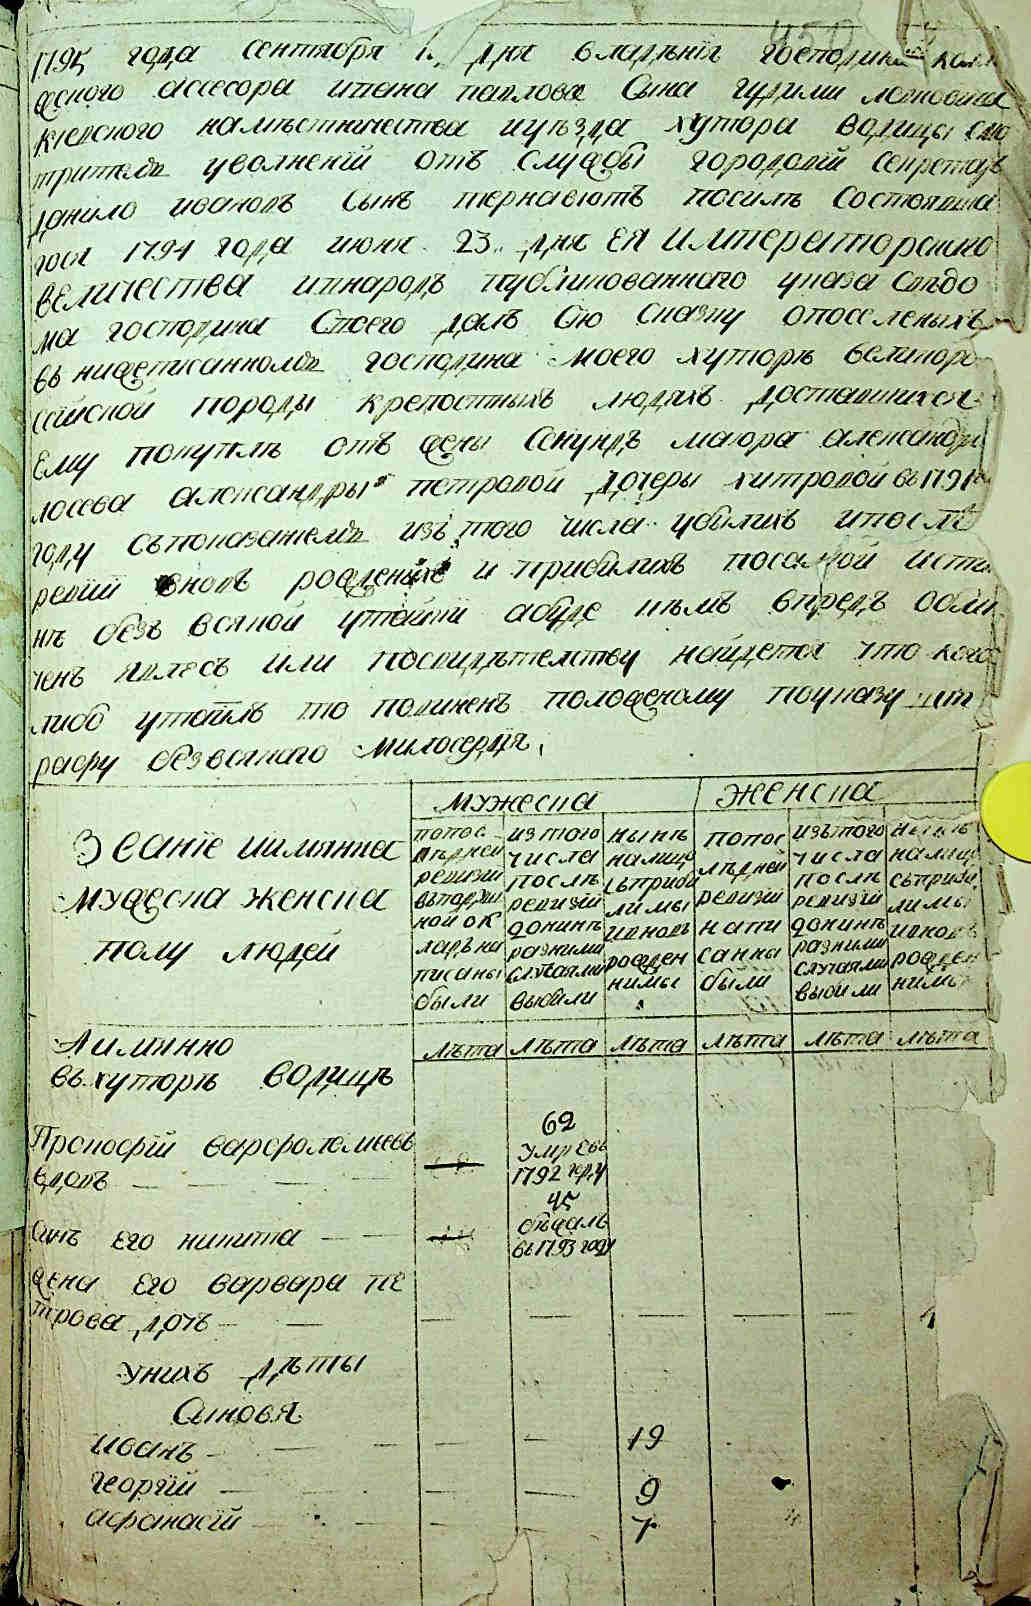 1795 года сентября 1. дня владѣнія господина кол
жского ассесора ивана павлова Сына гудими левковича
киевского намѣстничества иуѣзда хутора водицы смо
тритель уволнений отъ службы городовій секретар
данило ивановъ Сынъ тернавіотъ посилѣ Состоявша
гося 1794 года июня 23. дня ЕЯ Императорского
величества ивнародъ публикованного указа Свѣдо
ма господина Своего далъ Сію Сказку опоселеныхъ
въ нижеписанномъ господина моего хуторѣ великоро
ссійской породы крепостныхъ людяхъ доставшихся
Ему покупкѣ отъ жены Секундъ маиора александра
лосева александры петровой дочеры хитровой въ 1791
году съпоказаніемъ изъ того числа убилихъ ипослѣ
ревизій вновь рожденыхъ и прибилихъ посамой исти
нѣ безъ всякой утайки абуде вчемъ впредъ обли
ченъ явлюсъ или посвидѣтелству найдется что кого
либо утаилъ то повиненъ положеному поуказу шт
рафу безвсякаго милосердія.
Мужеска
Женска
Званіе иимянна
мужеска женска
полу людей
попос
лѣдней
ревизіи
въподуш
ной ок
ладъ на
писаны
были
изтого
числа
послѣ
ревизіи
донинѣ
разними
случаями
вибили
нынѣ
налицо
съприбы
лимы
ивновь
рожден
нимы
попос
лѣдней
ревизіи
напи
санны
были
изътого
числа
послѣ
ревизіи
донинѣ
разними
случаями
вибили
нынѣ
налицо
съприбы
лимы
ивновь
рожден
нимы
лѣта лѣта лѣта лѣта лѣта лѣта
Аимянно
въ хуторѣ водицѣ
Прокофій варфоломѣевъ
вдовъ
62
умре въ
1792 году
Синъ Его никита
45
бѣжалъ
въ 1793 году
жена Его варвара пе
трова дочъ 4
Унихъ дѣты
Синовя
иванъ 19
георгій 9
афанасій 7